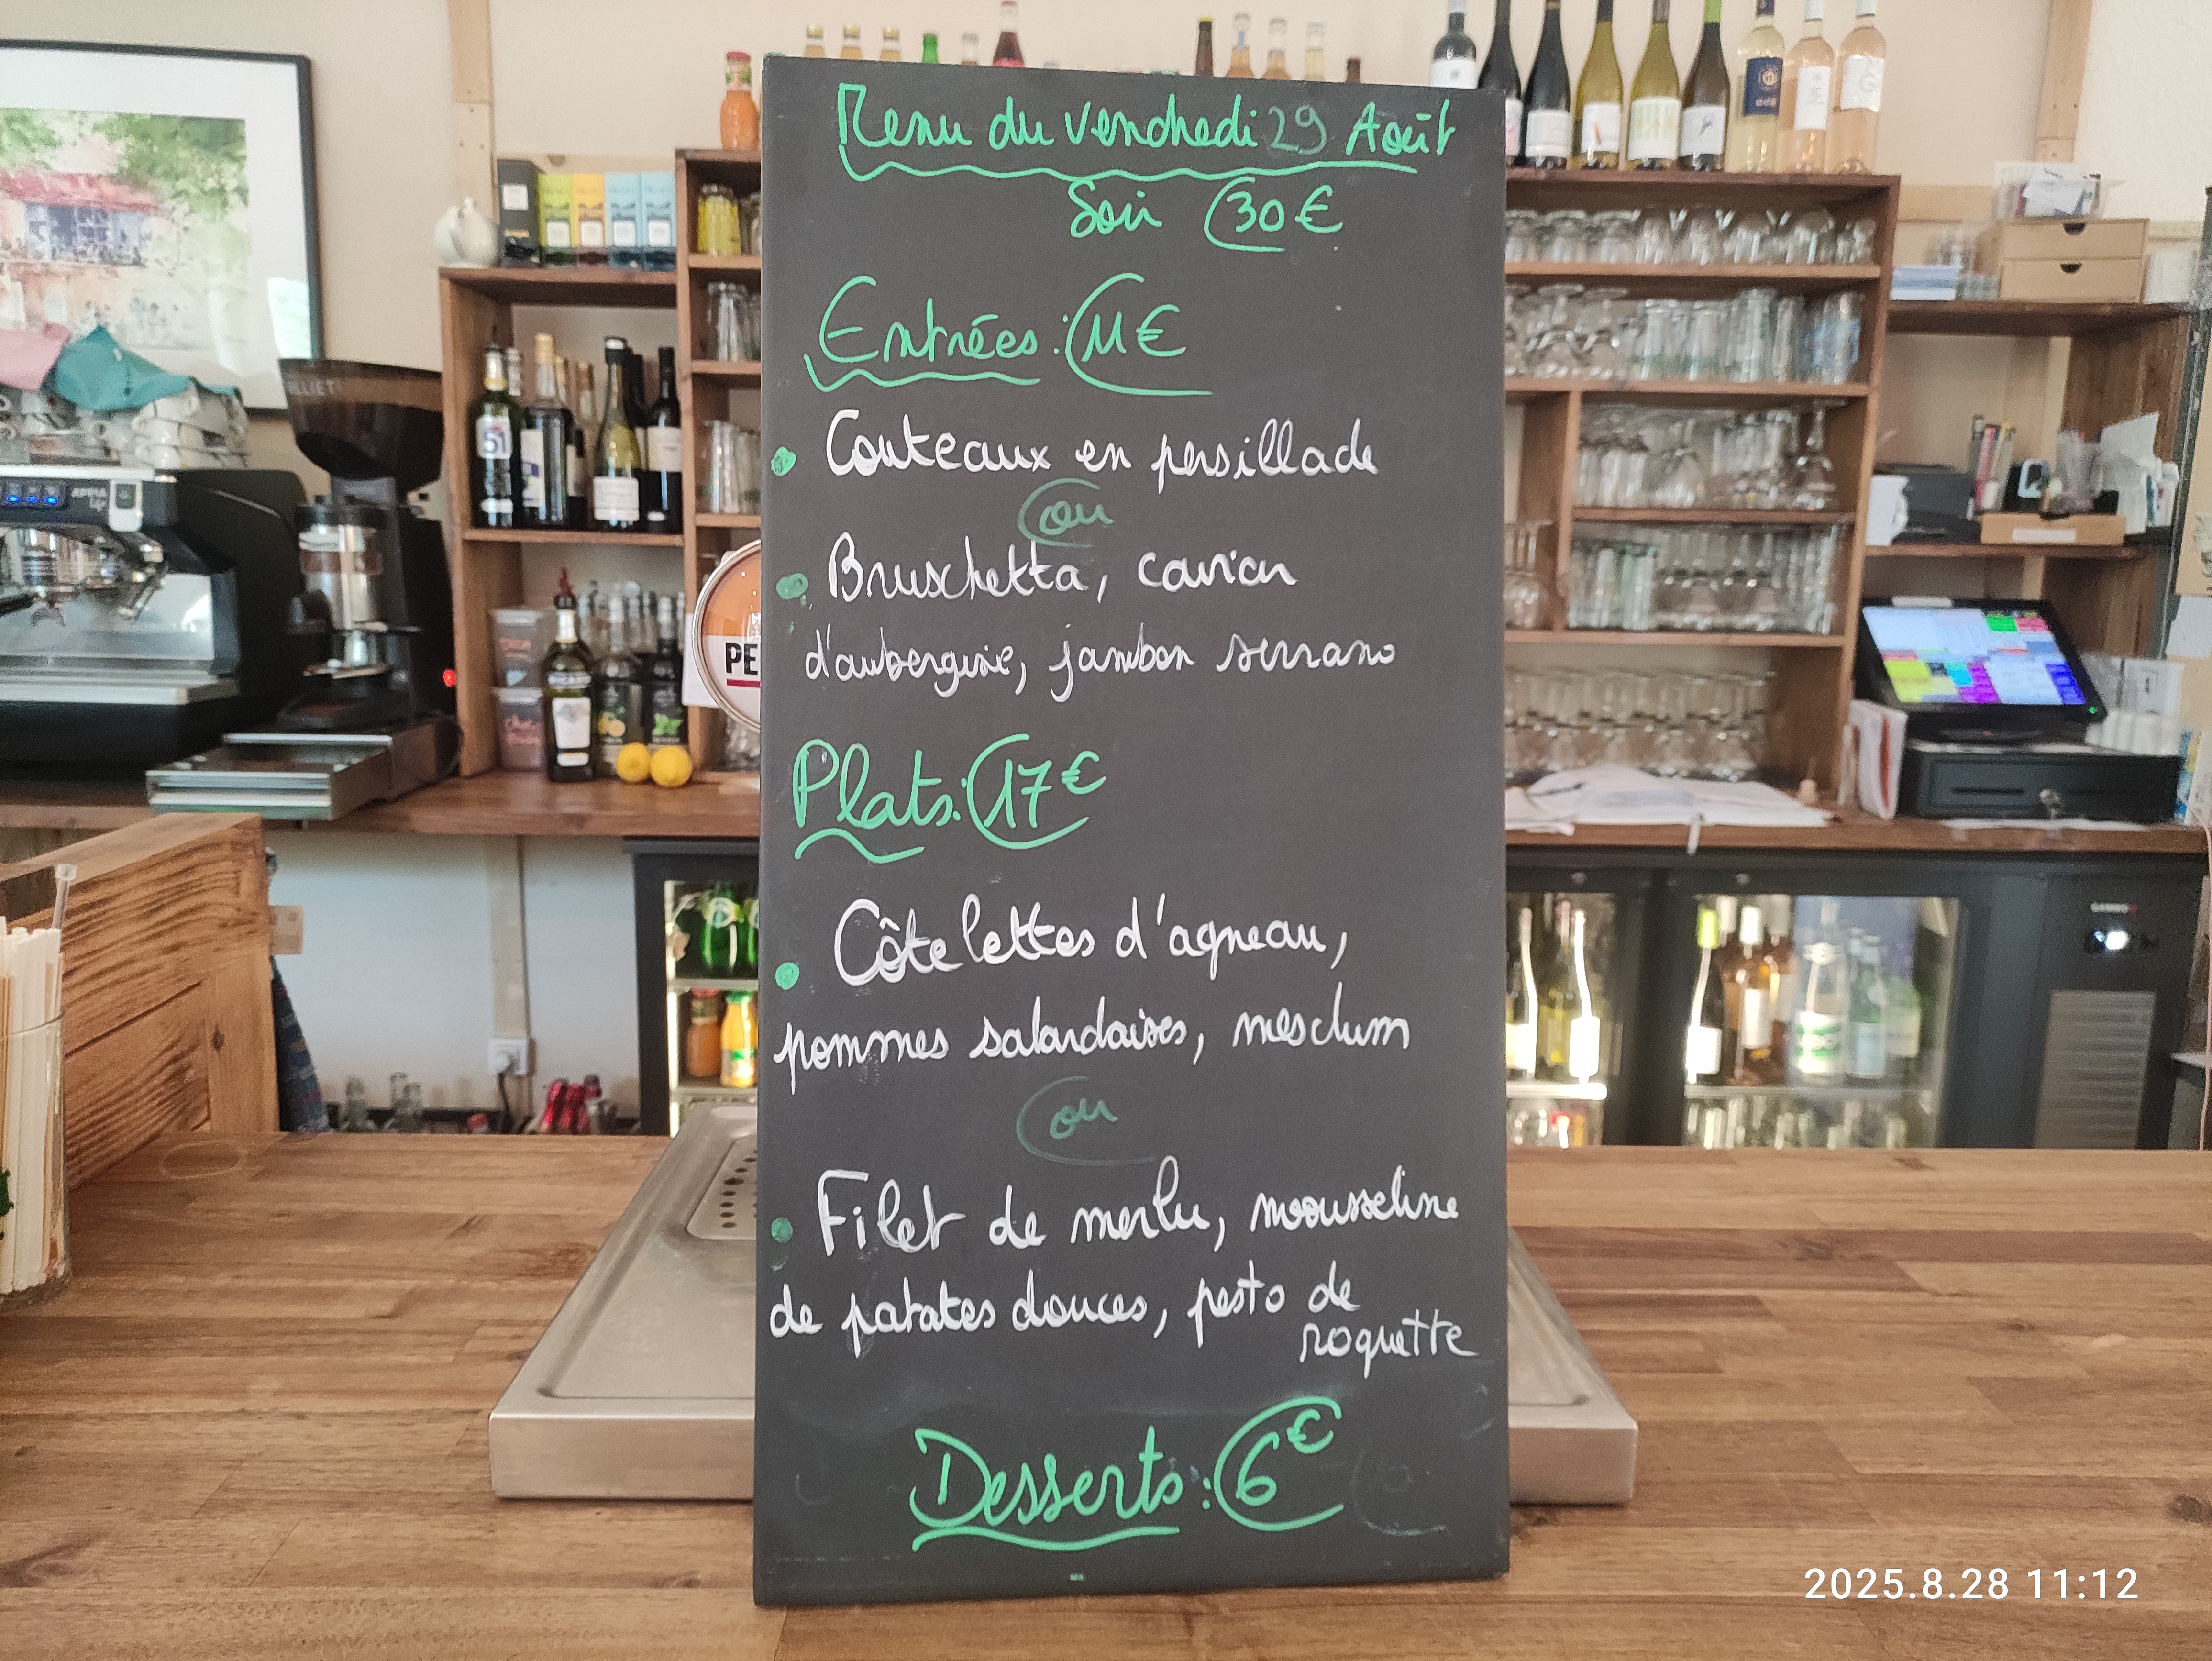 Menu du vendredi 29 Août
Soir 30€
Entrées : 11€
Couteaux en persillade
ou
Bruschetta, caviar
d'aubergine, jambon serrano
Plats : 17€
Côtelettes d'agneau,
pommes salardaises, mesclum
ou
Filet de merlu, mousseline
de patates douces, pesto de
roquette
Desserts : 6€
51
PE
2025.8.28 11:12